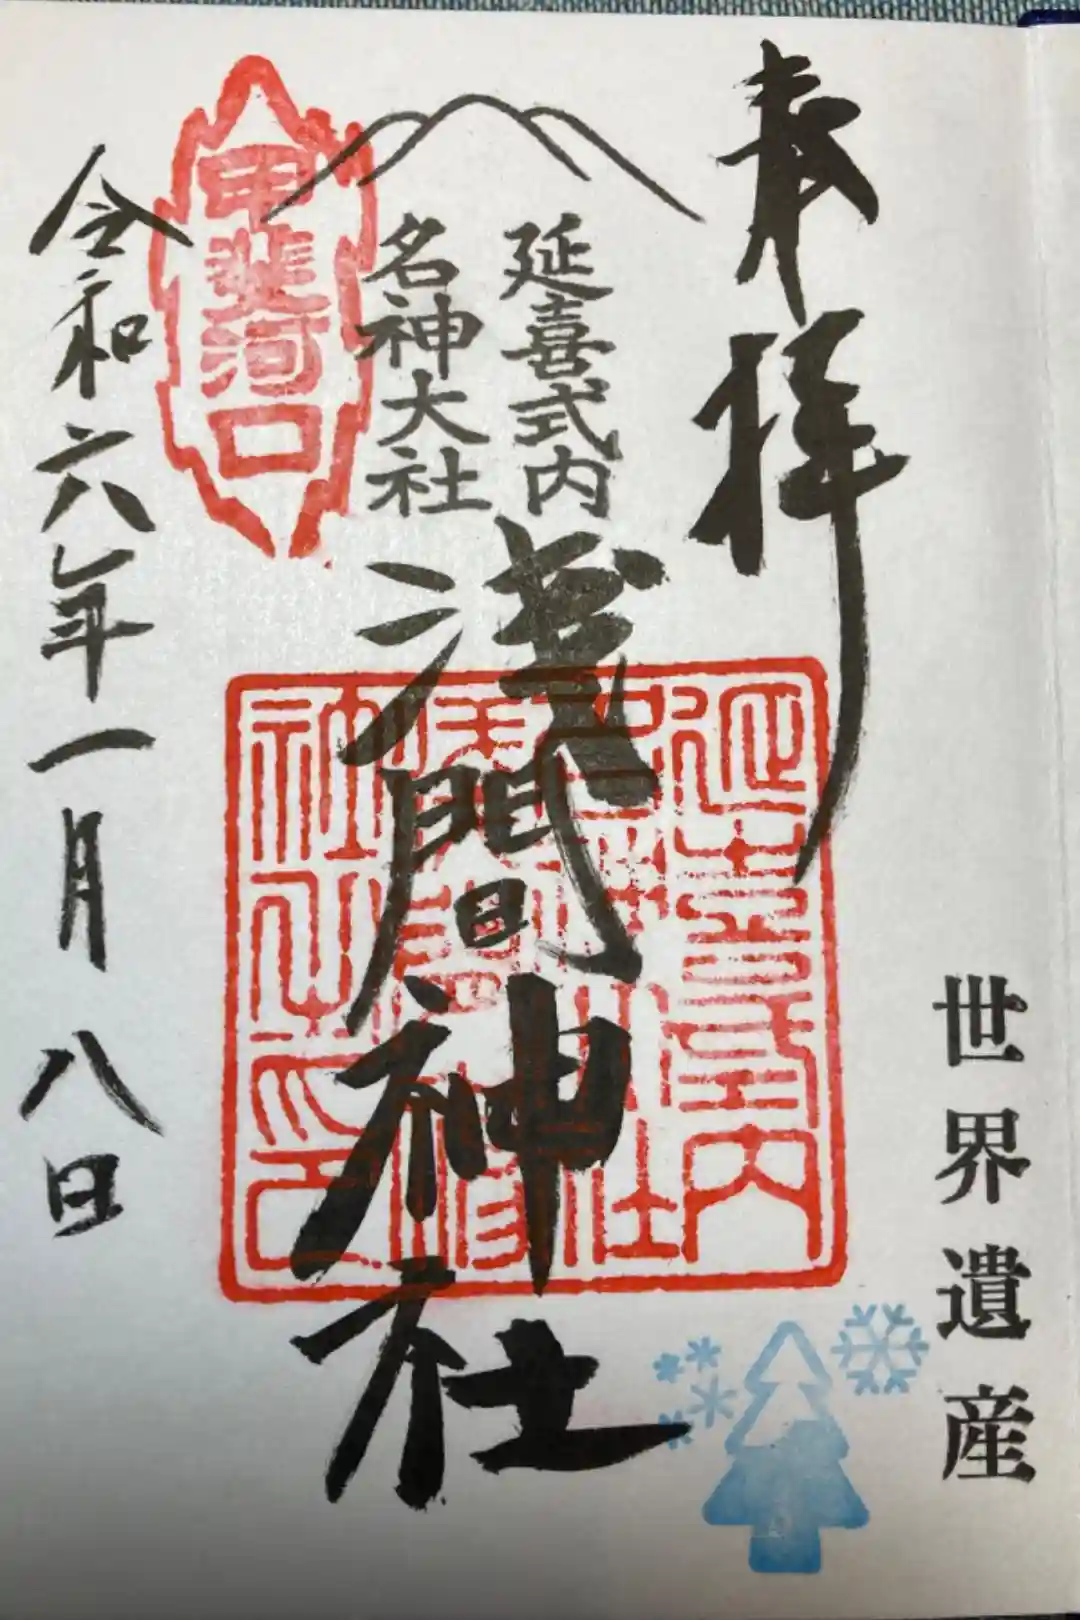 奉拝
世界遺産
延喜式内
名神大社
淺間神社
甲斐河口
令和六年一月八日
延喜式内